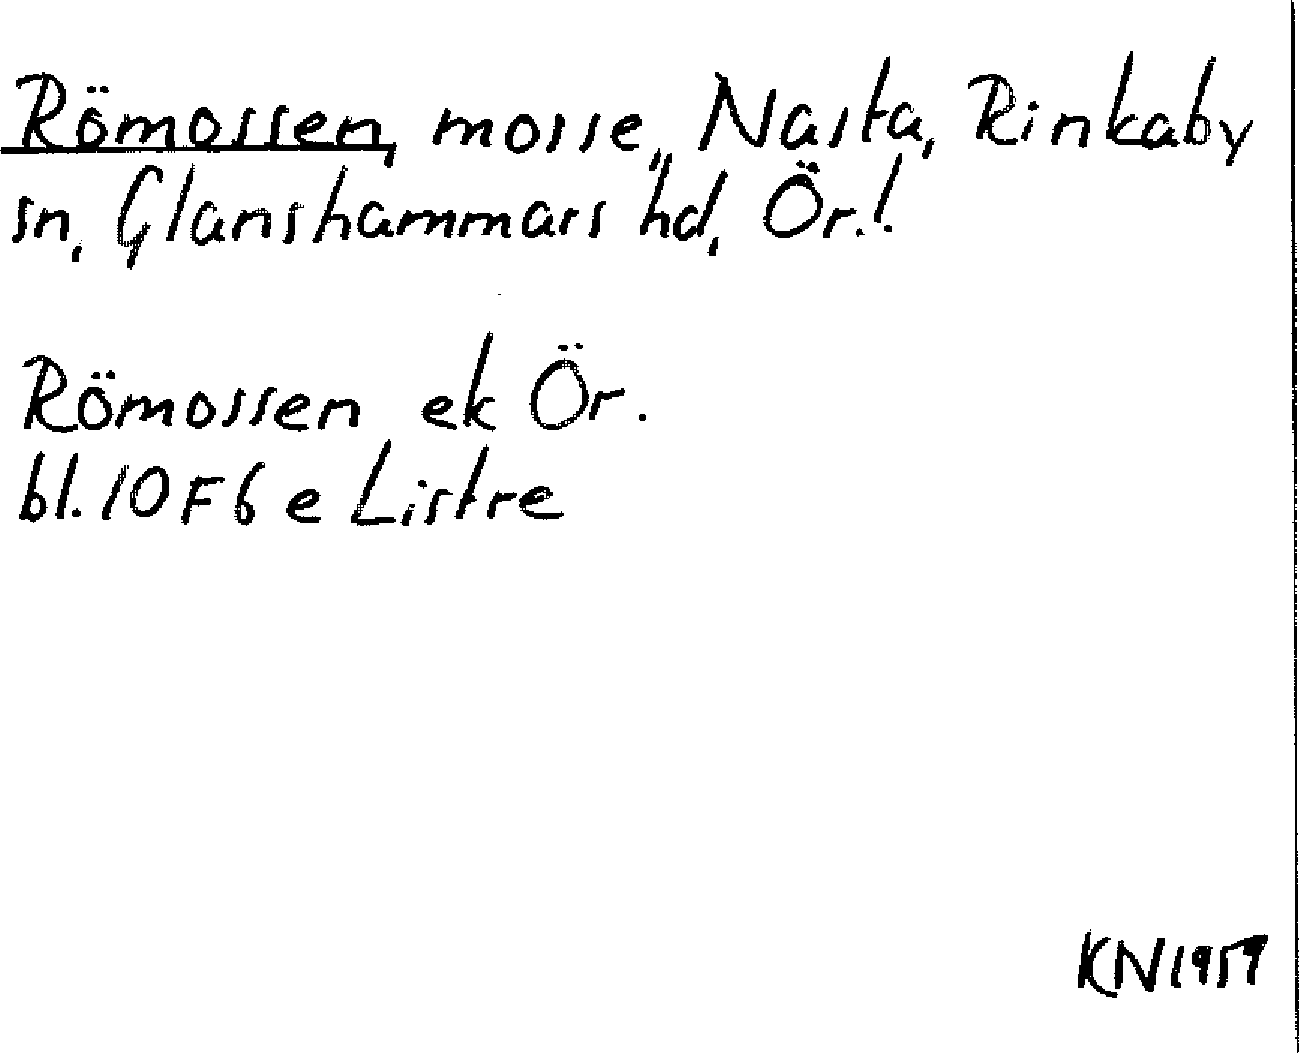 Römossen, mosse, Nasta, Rinkaby
sn, Glanshammars hd, Ör.!
Römossen ek Ör.
bl. 10F6e Listre
KN1959